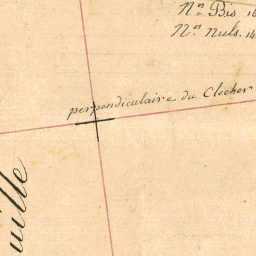 N.ᵒˢ Bis. 16
N.ᵒˢ nuls. 14
perpendiculaire du Clocher
uille